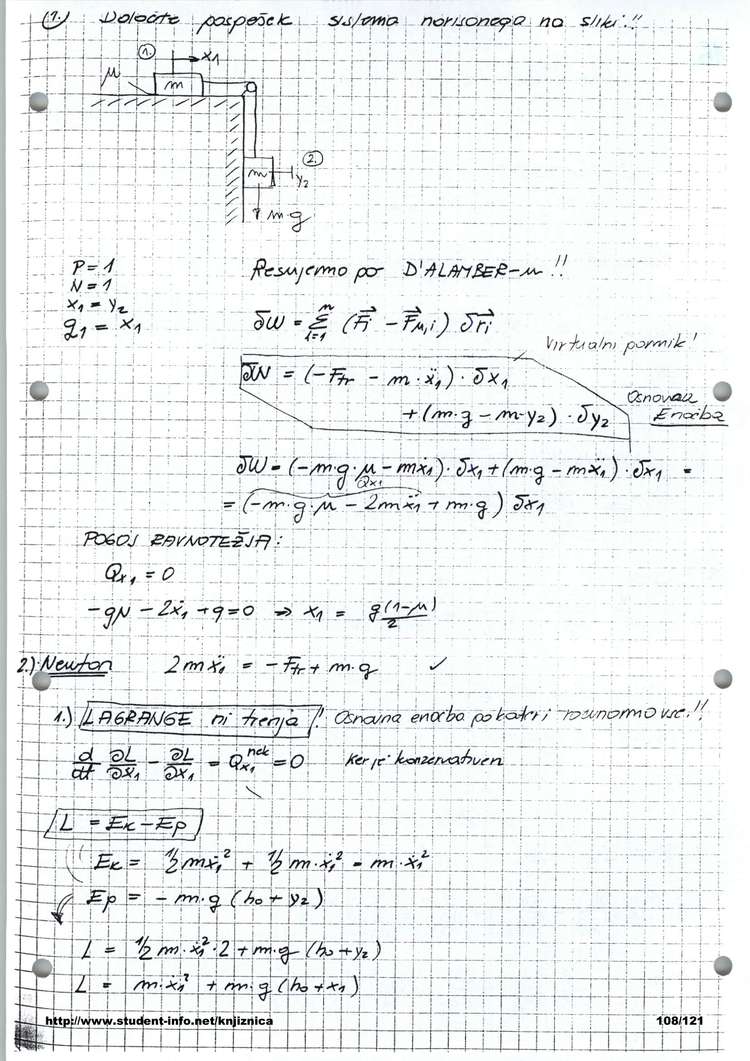 1.) Določite pospešek sistema narisanega na sliki!!
1.
x1
μ
m
2.
m
y2
m·g
P = 1
N = 1
x1 = y2
q1 = x1
Rešujemo po D'ALAMBER-u!!
δW = Σ (F⃗i − F⃗μ,i) δr⃗i
n
i=1
Virtualni pomik!
δW = (−Ftr − m·ẍ1)·δx1
+ (m·g − m·y2)·δy2
Osnovna
Enačba
δW = (−m·g·μ − mẍ1)·δx1 + (m·g − mẍ1)·δx1 =
Qx1
= (−m·g·μ − 2mẍ1 + m·g) δx1
POGOJ RAVNOTEŽJA:
Qx1 = 0
−gμ − 2ẍ1 + g = 0 ⇒ x1 = g(1−μ)/2
2.) Newton 2mẍ1 = −Ftr + m·g ✓
1.) LAGRANGE ni trenja! Osnovna enačba po kateri računamo vse!!
d/dt ∂L/∂ẋ1 − ∂L/∂x1 = Qx1^nek = 0 Ker je konzervativen
L = Ek − Ep
Ek = 1/2 mẋ1² + 1/2 m·ẋ1² = m·ẋ1²
Ep = − m·g (h0 + y2)
L = 1/2 m·ẋ1²·2 + m·g (h0 + y2)
L = m·ẋ1² + m·g (h0 + x1)
http://www.student-info.net/knjiznica
108/121